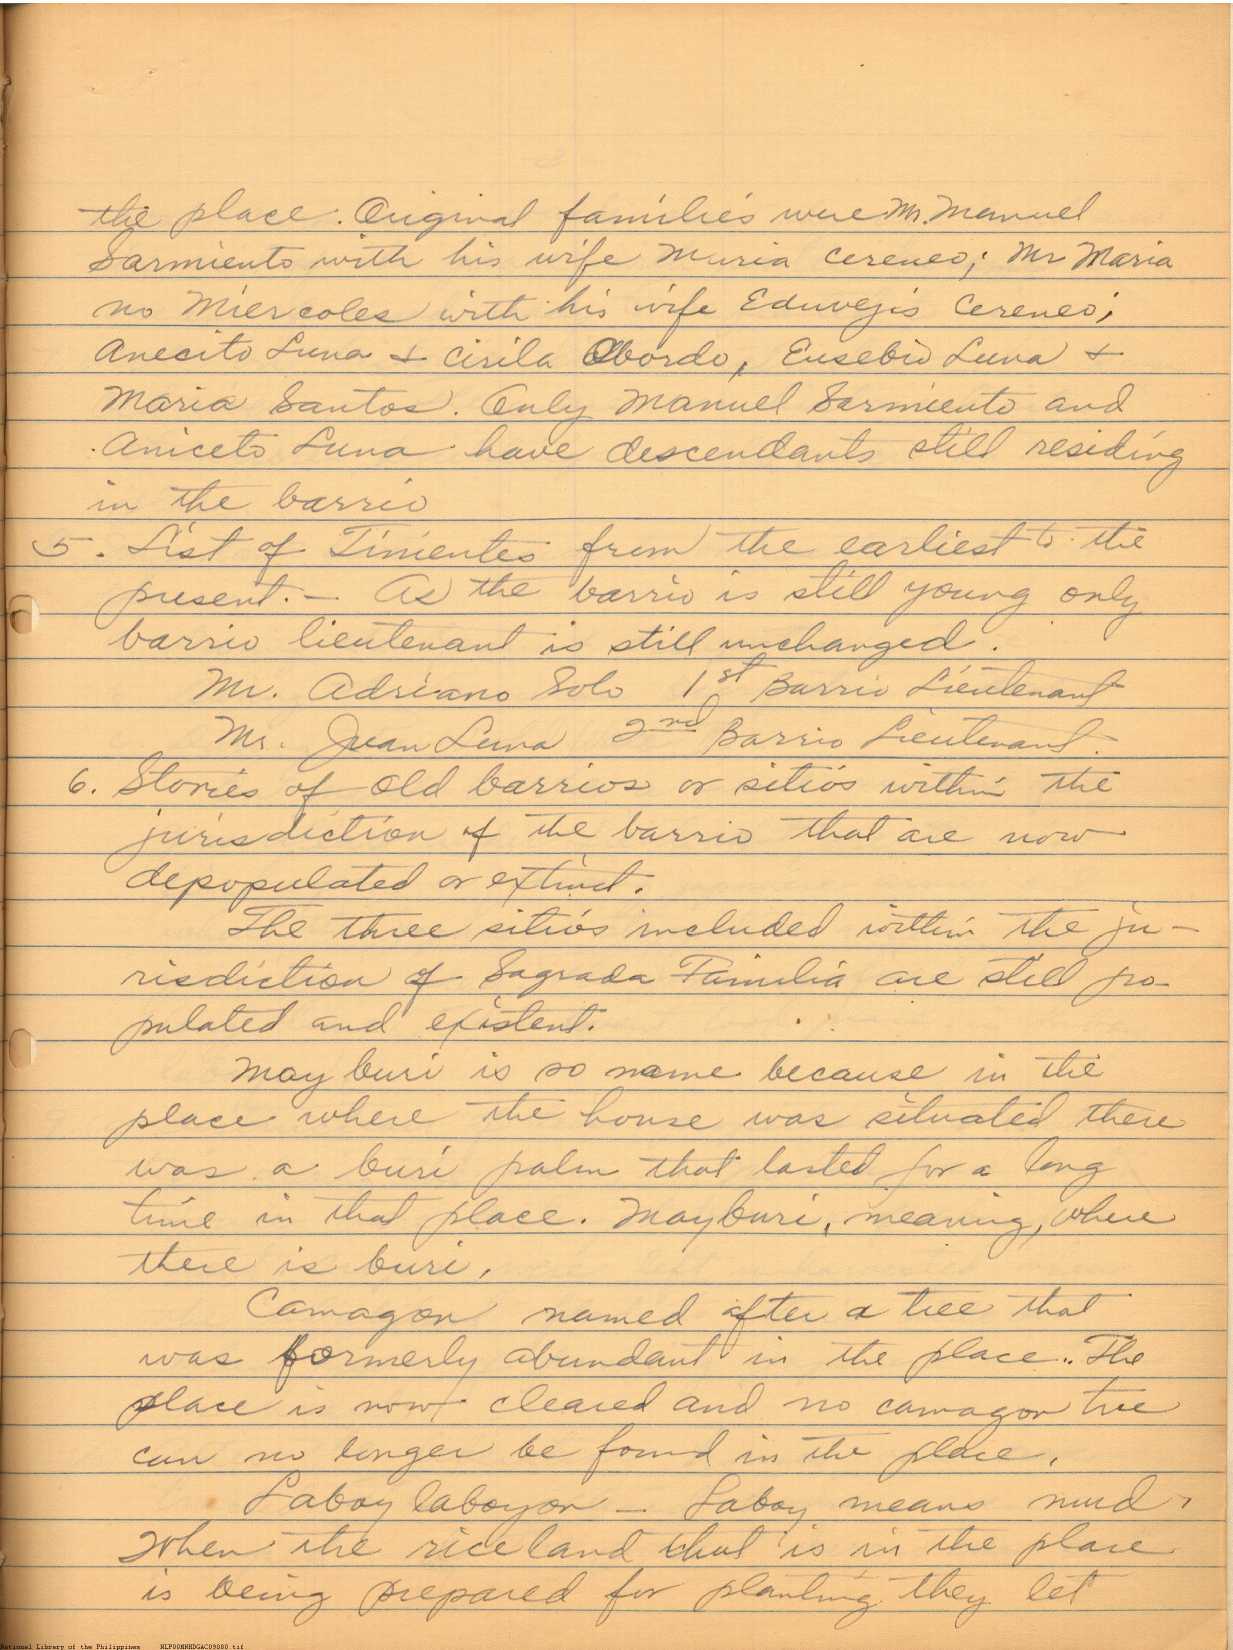 the place. Original families were Mr. Manuel
Sarmiento with his wife Maria Cereneo; Mr Maria
no Miercoles with his wife Eduvejis Cereneo;
Anecito Luna & Cirila Obordo, Eusebio Luna &
Maria Santos. Only Manuel Sarmiento and
Aniceto Luna have descendants still residing
in the barrio
5. List of Tinientes from the earliest to the
present. — As the barrio is still young only
barrio lieutenant is still unchanged.
Mr. Adriano Solo 1st Barrio Lieutenant
Mr. Juan Luna 2nd Barrio Lieutenant.
6. Stories of old barrios or sitios within the
jurisdiction of the barrio that are now
depopulated or extinct.
The three sitios included within the ju-
risdiction of Sagrada Familia are still po-
pulated and existent.
May buri is so name because in the
place where the house was situated there
was a buri palm that lasted for a long
time in that place. Mayburi, meaning, where
there is buri.
Camagon named after a tree that
was formerly abundant in the place.. The
place is now cleared and no camagon tree
can no longer be found in the place.
Laboy laboyon — Laboy means mud.
When the rice land that is in the place
is being prepared for planting they let
National Library of the Philippines NLP00MNHDGAC09080.tif